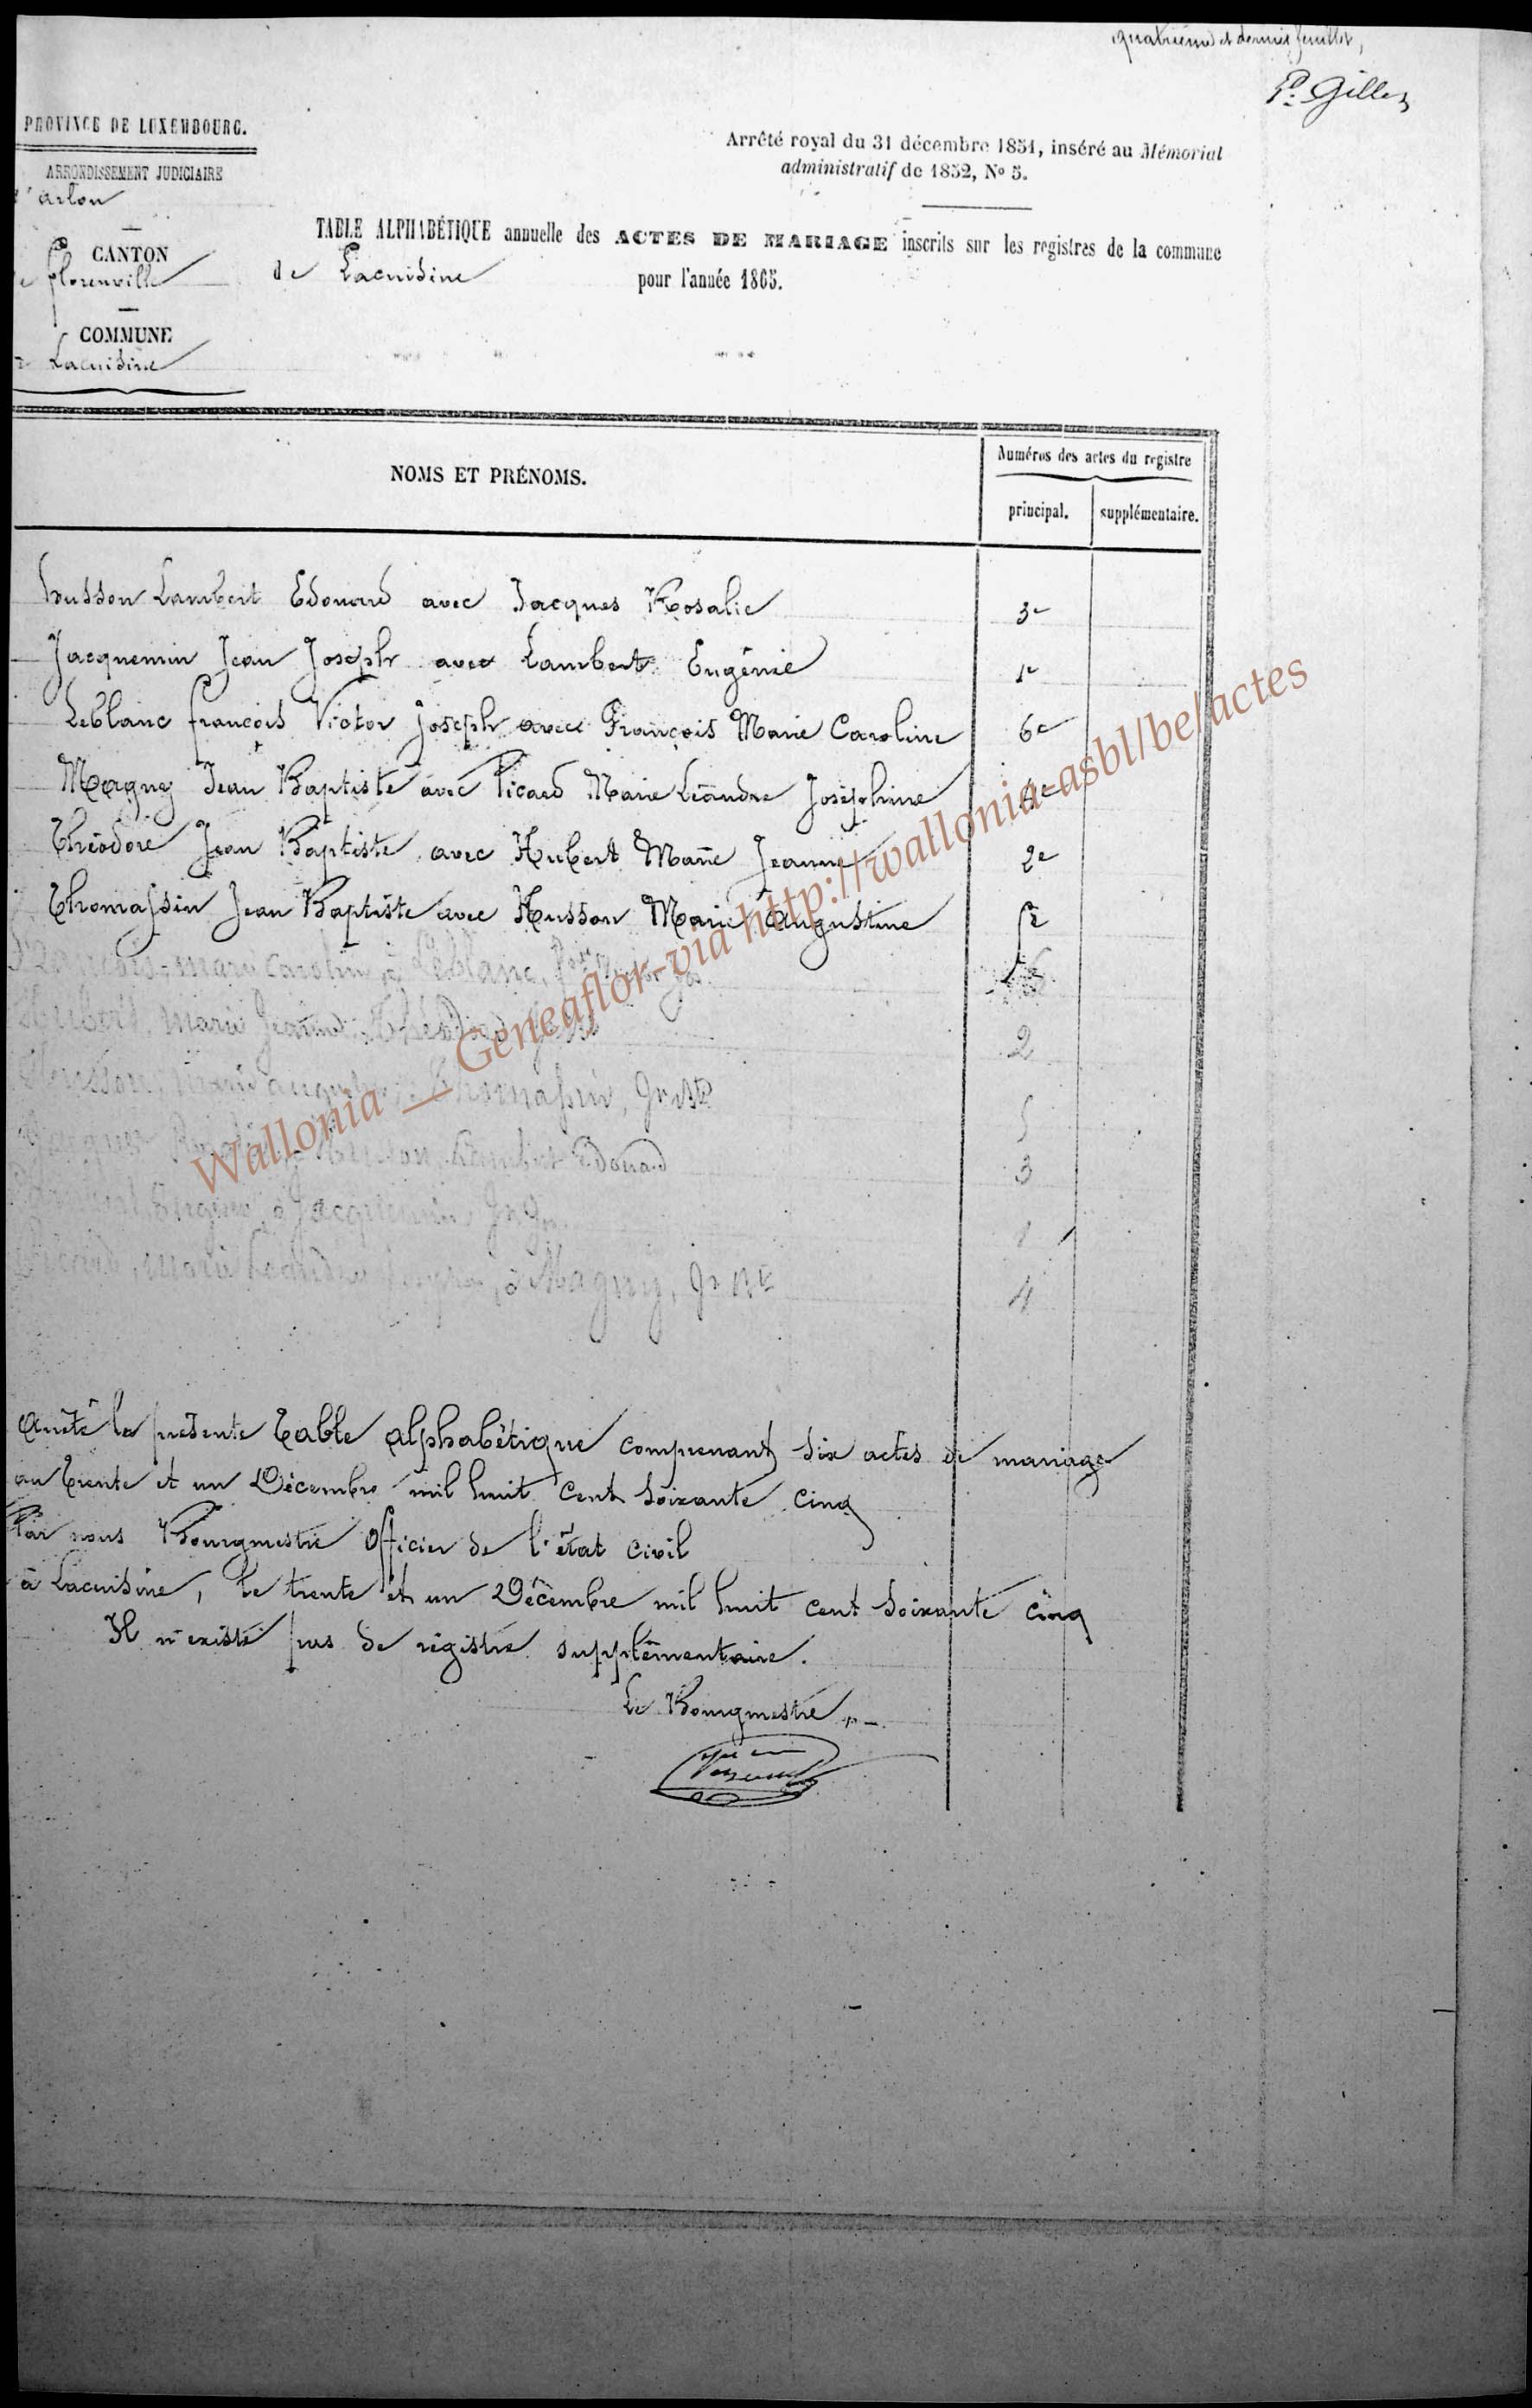 quatrième et dernier feuillet,
P. Gilles
PROVINCE DE LUXEMBOURG.
ARRONDISSEMENT JUDICIAIRE
d'arlon
CANTON
de florenville
COMMUNE
de Lacuisine
Arrêté royal du 31 décembre 1851, inséré au Mémorial
administratif de 1852, No 5.
TABLE ALPHABÉTIQUE annuelle des ACTES DE MARIAGE inscrits sur les registres de la commune
de Lacuisine pour l'année 1865.
NOMS ET PRÉNOMS.
Numéros des actes du registre
principal. supplémentaire.
husson Lambert Edouard avec Jacques Rosalie 3e
Jacquemin Jean Joseph avec Lambert Eugénie 1e
Leblanc françois Victor Joseph avec François Marie Caroline 6e
Magny Jean Baptiste avec Picard Marie Léandre Joséphine 4e
Théodore Jean Baptiste avec Hubert Marie Jeanne 2e
Thomassin Jean Baptiste avec Husson Marie Augustine 5e
François, marie Caroline à Leblanc, 6
Hubert, marie Jeanne, à Théodore 2
Husson, marie augustine à Thomassin, Jn Bte 5
Jacques Rosalie à Husson, Lambert Edouard 3
Lambert, Eugénie, à Jacquemin Jn Jh 1
Picard, marie Léandre à Magny, Jn Bte 4
Arrêté la présente Table alphabétique comprenant six actes de mariage
au trente et un Décembre mil huit cent soixante cinq
Par nous Bourgmestre Officier de l'état civil
à Lacuisine, le trente et un Décembre mil huit cent soixante cinq
Il n'existe pas de régistre supplémentaire.
Le Bourgmestre
Wallonia __ Geneaflor-via http://wallonia-asbl/be/actes